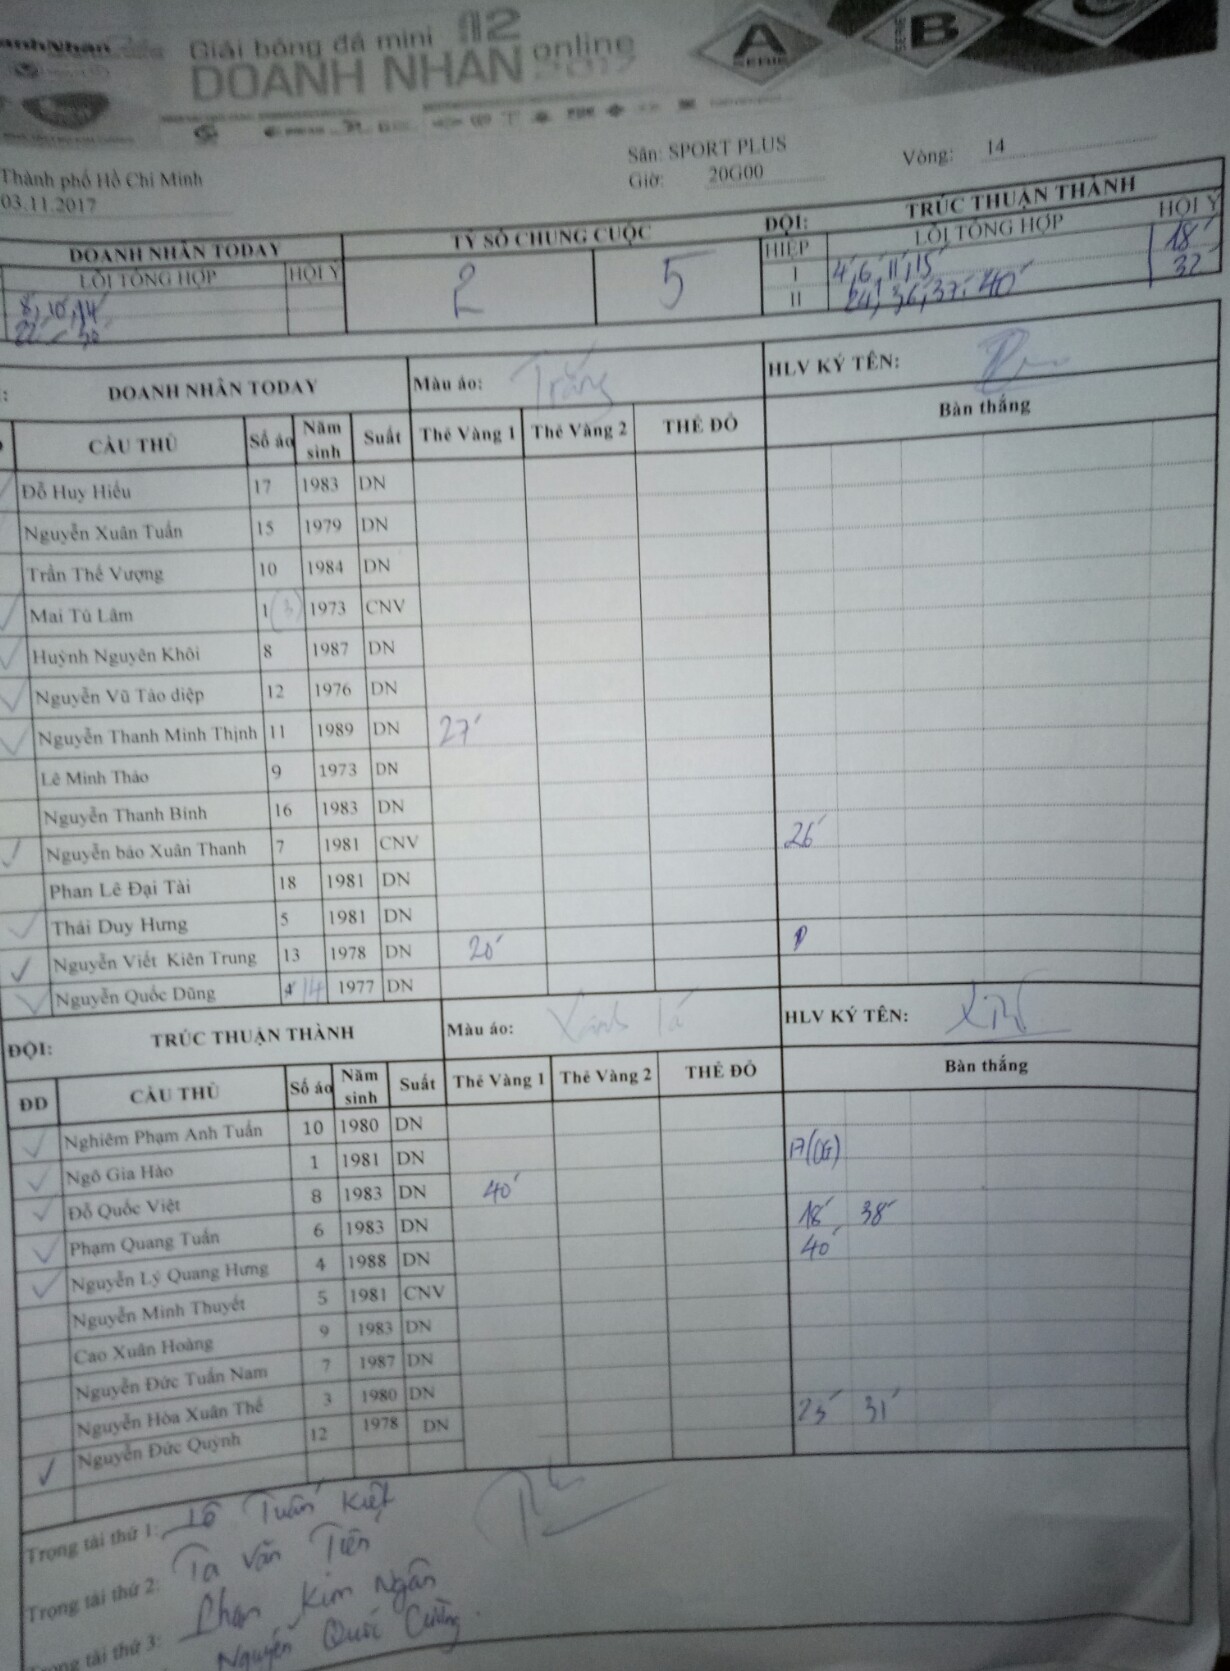 Giải bóng đá mini 12
DOANH NHÂN online
2017
A
SERIE
SERIE
B
Thành phố Hồ Chí Minh
Sân: SPORT PLUS
Vòng: 14
03.11.2017
Giờ: 20G00
DOANH NHÂN TODAY
TỶ SỐ CHUNG CUỘC
ĐỘI: TRÚC THUẬN THÀNH
LỖI TỔNG HỢP HỘI Ý
2 5
HIỆP LỖI TỔNG HỢP HỘI Ý
8', 10', 14' I 4', 6', 11', 15' 18'
22' 30' II 24', 36', 37', 40' 32'
DOANH NHÂN TODAY Màu áo: Trắng HLV KÝ TÊN:
CẦU THỦ Số áo Năm sinh Suất Thẻ Vàng 1 Thẻ Vàng 2 THẺ ĐỎ Bàn thắng
Đỗ Huy Hiếu 17 1983 DN
Nguyễn Xuân Tuấn 15 1979 DN
Trần Thế Vượng 10 1984 DN
Mai Tú Lâm 1 (3) 1973 CNV
Huỳnh Nguyên Khôi 8 1987 DN
Nguyễn Vũ Tảo diệp 12 1976 DN
Nguyễn Thanh Minh Thịnh 11 1989 DN 27'
Lê Minh Thảo 9 1973 DN
Nguyễn Thanh Bình 16 1983 DN
Nguyễn bảo Xuân Thanh 7 1981 CNV 26'
Phan Lê Đại Tài 18 1981 DN
Thái Duy Hưng 5 1981 DN
Nguyễn Viết Kiên Trung 13 1978 DN 20'
Nguyễn Quốc Dũng 4 14 1977 DN
ĐỘI: TRÚC THUẬN THÀNH Màu áo: Xanh lá HLV KÝ TÊN:
ĐD CẦU THỦ Số áo Năm sinh Suất Thẻ Vàng 1 Thẻ Vàng 2 THẺ ĐỎ Bàn thắng
Nghiêm Phạm Anh Tuấn 10 1980 DN
Ngô Gia Hào 1 1981 DN 17(OG)
Đỗ Quốc Việt 8 1983 DN 40'
Phạm Quang Tuấn 6 1983 DN 18' 38'
Nguyễn Lý Quang Hưng 4 1988 DN 40'
Nguyễn Minh Thuyết 5 1981 CNV
Cao Xuân Hoàng 9 1983 DN
Nguyễn Đức Tuấn Nam 7 1987 DN
Nguyễn Hòa Xuân Thế 3 1980 DN
Nguyễn Đức Quỳnh 12 1978 DN 23' 31'
Trọng tài thứ 1: Lê Tuấn Kiệt
Trọng tài thứ 2: Tạ Văn Tiên
Trọng tài thứ 3: Phan Kim Ngân
Nguyễn Quốc Cường